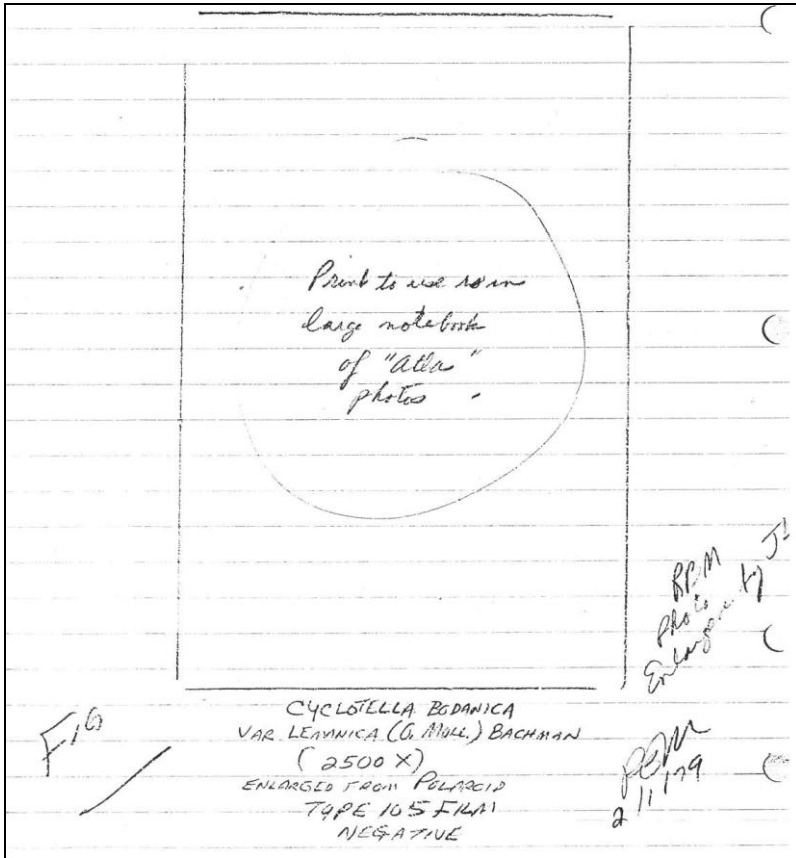 Print to use is in
large notebook
of "Atlas"
photos -
RPM
Photo
Enlargement by
Fig
CYCLOTELLA BODANICA
VAR. LEMANICA (O. MÜLL.) BACHMAN
(2500 X)
ENLARGED FROM POLAROID
TYPE 105 FILM
NEGATIVE
2/1/79